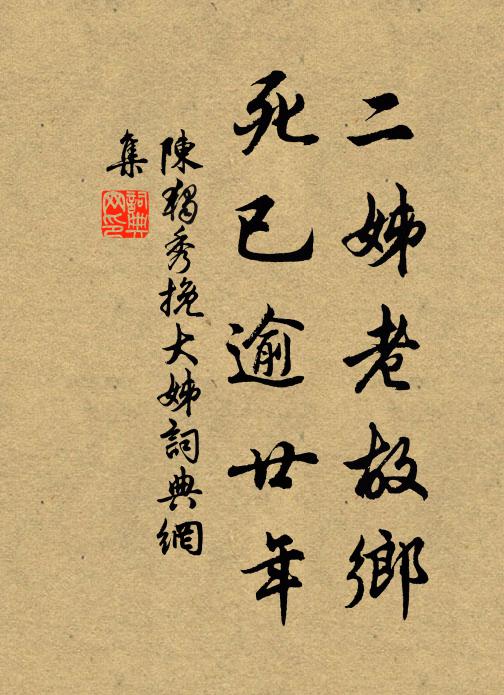 二姊老故鄉
死已逾廿年
陳獨秀挽大姊詞典網
集
詞典
网印